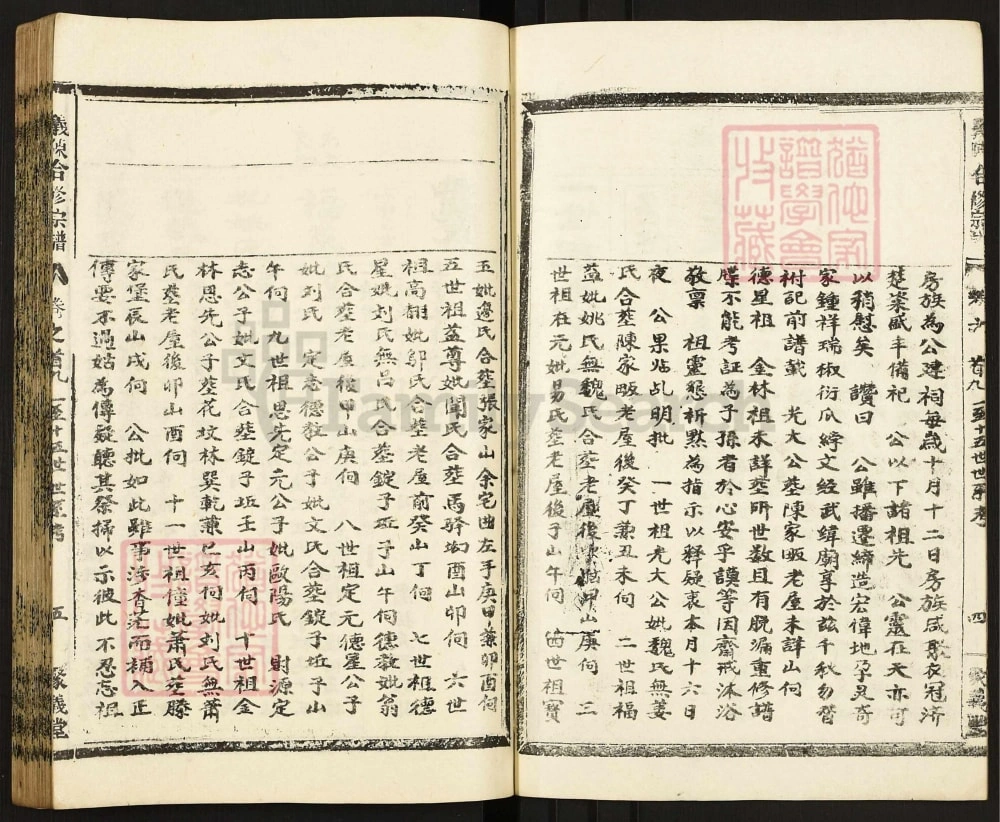 房族為公建祠每歲十月十二日房族咸聚衣冠济
楚粢盛丰備祀　公以下諸祖先　公靈在天亦可
以稍慰矣　讚曰　公雖播遷締造宏偉地孕灵奇
家鍾祥瑞椒衍瓜綿文經武緯廟享於茲千秋勿替
祔記前譜載　光大公塟陳家畈老屋未詳山向
德星祖　金林祖未詳塟所世数且有脱漏重修譜
牒不能考証為子孫者於心安乎謨等因齋戒沐浴
敬禀　祖靈懇祈黙為指示以釋疑衷本月十六日
夜　公果貼乩明批　一世祖光大公妣魏氏無姜
氏合塟陳家畈老屋後癸丁兼丑未向　二世祖福
益妣姚氏無魏氏合塟老屋後甲山庚向　三
世祖在元妣易氏塟老屋後子山午向　四世祖寳
玉妣邊氏合塟張家山余宅曲左手庚甲兼卯酉向
五世祖益尊妣聞氏合塟馬驿坳酉山卯向　六世
祖高翮妣邬氏合塟老屋前癸山丁向　七世祖德
星妣刘氏無吕氏合塟錠子坵子山午向德敖妣翁
氏合塟老屋後甲山庚向　八世祖定元德星公子
妣刘氏　定志德敖公子妣文氏合塟錠子坵子山
午向　九世祖思先定元公子妣歐陽氏　財源定
志公子妣文氏合塟錠子坵壬山丙向　十世祖金
林思先公子塟花坟林巽乾兼巳亥向妣刘氏無蕭
氏塟老屋後卯山酉向　十一世祖權妣蕭氏塟滕
家堡辰山戌向　公批如此雖事涉杳茫而補入正
傳要不過姑為傳疑聽其祭掃以示彼此不忍忘祖
義陳合修宗譜
卷之首九　一至十五世世系考
五
聚義堂
合修宗譜
首九　一至十五世世系考
四
猶他家譜學會收藏
FamilySearch